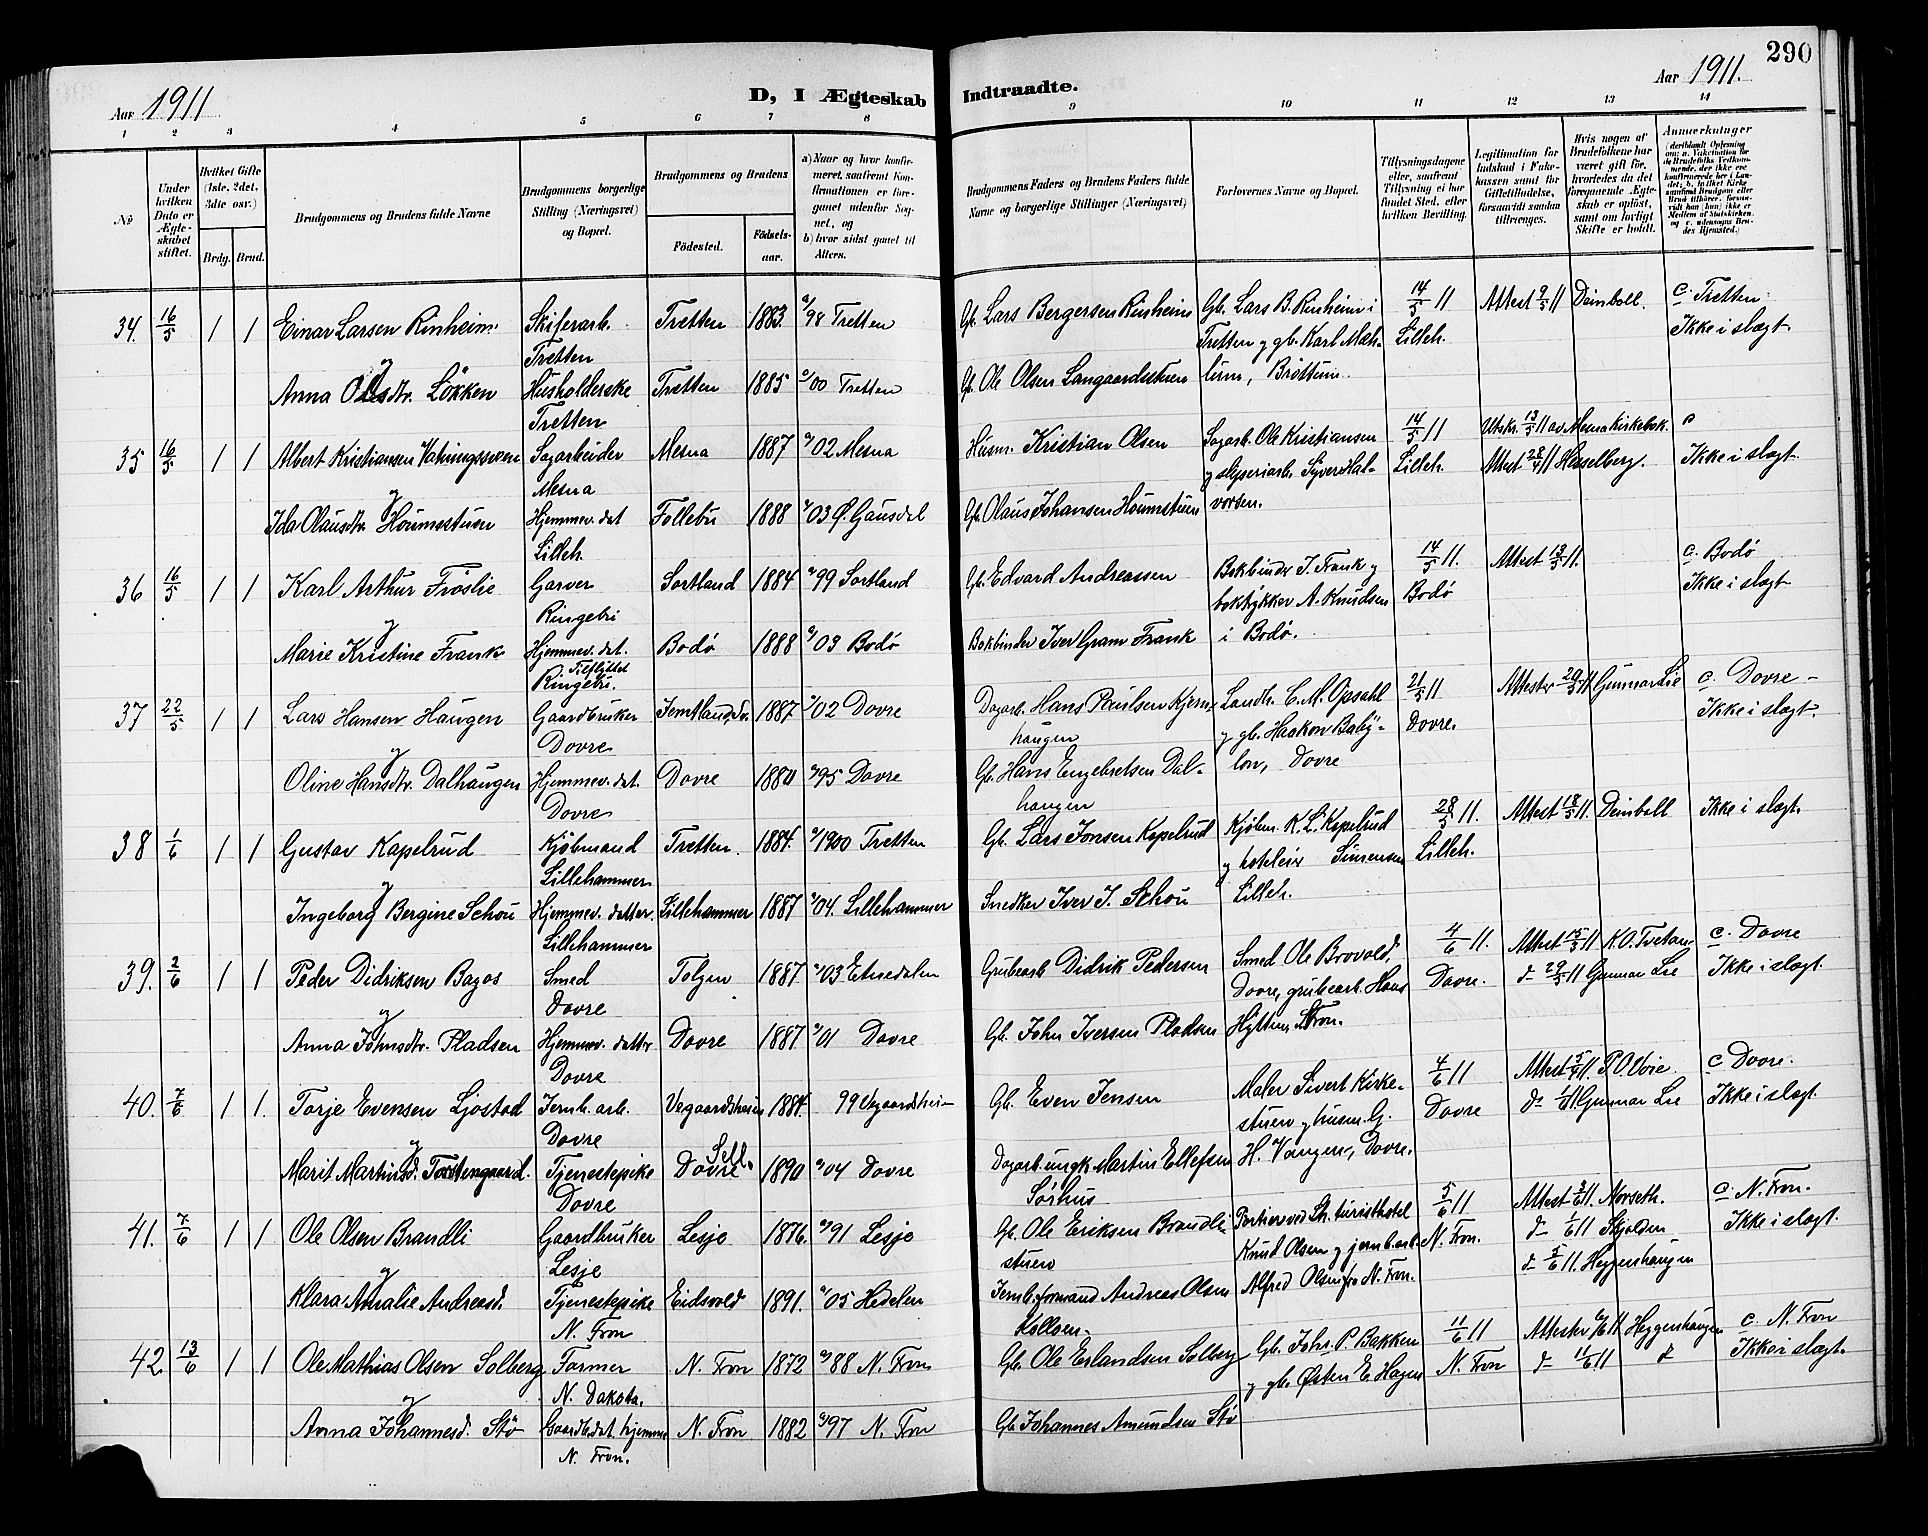 290
Aar 1911
D, I Ægteskab
Indtraadte.
Aar 1911.
1 2 3 4 5 6 7 8
9 10 11 12 13 14
No
Under hvilken Dato er Ægteskabet stiftet.
Hvilket Gifte (1ste, 2det, 3die osv.)
Brdg. Brud.
Brudgommens og Brudens fulde Navne
Brudgommens borgerlige Stilling (Næringsvei) og Bopæl.
Brudgommens og Brudens
Födested. Födsels-aar.
a) Naar og hvor konfirmeret, saafremt Konfirmationen er foregaaet udenfor Sognet, og
b) hvor sidst gaaet til Alters.
Brudgommens Faders og Brudens Faders fulde Navne og borgerlige Stillinger (Næringsvei)
Forlovernes Navne og Bopæl.
Tillysningsdagene eller, saafremt Tillysning ei har fundet Sted, efter hvilken Bevilling.
Legitimation for Indskud i Enkekassen samt for Giftetilladelse, forsaavidt saadan tiltrænges.
Hvis nogen af Brudefolkene har været gift før, hvorledes da det foregaaende Ægteskab er opløst, samt om lovligt Skifte er holdt.
Anmærkninger
34. 16/5 1 1 Einar Larsen Rinheim Skiferarb. Tretten 1883. /98 Tretten Gb. Lars Bergersen Rinheim Gb. Lars B. Rinheim i 14/5 11 Attest 9/5 11 Deinboll. c. Tretten
Tretten Tretten y gb. Karl Mæh- Lilleh. Ikke i slægt.
y
Anna Olsdtr. Lökken Husholderske Tretten 1885 /00 Tretten Gb. Ole Olsen Langaardsstuen lum, Brøttum.
Tretten
35 16/5 1 1 Albert Kristiansen Sagarbeider Mesna 1887 /02 Mesna Husm. Kristian Olsen Sagarb. Ole Kristiansen 14/5 11 Utskr. 13/5 11 av Mesna Kirkebok.
Mesna y sliperiarb. Syver Hal- Lilleh. Attest 28/4 11 Hesselberg. Ikke i slægt
y
Ida Olausdtr. Houmsstuen Hjemmev. dat Follebu 1888 /03 Ø. Gausdal Gb. Olaus Johansen Houmstuen vorsen.
Lilleh.
36 16/5 1 1 Karl Arthur Fröslie Garver Sortland 1884 /99 Sortland Gb. Edvard Andreassen Bokbinder I. Frank y 14/5 11. Attest 13/5 11. c. Bodø
Ringebu boktrykker A. Knudsen Bodø Ikke i slægt
y
Marie Kristine Frank Hjemmev. dat. Bodö 1888 /03 Bodö Bokbinder Iver Gram Frank i Bodø.
Tilflyttet
Ringebu.
37 22/5 1 1 Lars Hansen Haugen Gaardbruker 1887 /02 Dovre Dagarb. Hans Paulsen Kjern- Landh. C. M. Opsahl 21/5 11 Attester 20/5 11 Gunnar Lie c. Dovre -
Dovre haugen y gb. Haakon Baby- Dovre. Ikke i slægt.
y
Oline Hansdtr. Dalhaugen Hjemmev. dat. Dovre 1880 /95 Dovre Gb. Hans Engebretsen Dal- lon, Dovre
Dovre haugen
38 1/6 1 1 Gustav Kapelrud Kjöbmand Tretten. 1884. /1900 Tretten Gb. Lars Jonsen Kapelrud Kjøbm. K. L. Kapelrud 28/5 11. Attest 18/5 11. Deinboll Ikke i slægt.
Lillehammer y hoteleier Simensen Lilleh.
y
Ingeborg Bergine Schou Hjemmev. datter. Lillehammer 1887 /04. Lillehammer Snedker Iver I. Schou Lilleh.
Lillehammer
39. 2/6 1 1 Peder Didriksen Bagos Smed Tolgen 1887 /03 Etnedalen Grubearb. Didrik Pedersen Smed Ole Brovold, 4/6 11. Attest 15/5 11 K. O. c. Dovre
Dovre Dovre, grubearb. Hans Dovre. d- 29/5 11 Gunnar Lie Ikke i slægt.
y
Anna Johnsdtr. Pladsen Hjemmev. datter Dovre 1887 /01 Dovre Gb. John Iversen Pladsen Hytten, S. Fron.
Dovre
40. 7/6 1 1. Torje Evensen Ljostad Jernb. arb. Vegaardsheien 1884. 99 Vegaardshei- Gb. Even Jensen Maler Sivert Kirke- 4/6 11 Attest 5/4 11. P. O. c Dovre.
Dovre stuen y husm. G. Dovre d- 1/6 11. Gunnar Lie Ikke i slægt.
y Sell.
Marit Martinsd. Tostengaard. Tjenestepike Dovre 1890 /04 Dovre Dagarb. ungk. Martin Ellefsen H. Vangen, Dovre.
Dovre Sörhus
41. 7/6 1 1 Ole Olsen Brandli Gaardbruker Lesje 1876. /91 Lesje Gb. Ole Eriksen Brandli- Portier ved Sk. turisthotel 5/6 11 Attest 3/6 11. Norseth. c. N. Fron.
Lesje stuen Knud Olsen y jernb. arb. N. Fron. d- 1/6 11 Skjolden Ikke i slægt.
y d- 5/6 11. Heggenhaugen
Klara Amalie Andreasd. Tjenestepike Eidsvold 1891. /05 Hedalen Jernb. formand Andreas Olsen Alfred Olsen fra N. Fron.
N. Fron Kolloen.
42. 13/6 1 1 Ole Mathias Olsen Solberg Farmer N. Fron 1872 /88 N. Fron Gb. Ole Erlandsen Solberg Gb. Johs. P. Bakken 11/6 11 Attester 6/6 11 Heggenhaugen c. N. Fron
N. Dakota. y gb. Østen E. Hagen N. Fron d- 11/6 11 d- Ikke i slægt.
y
Anna Johannesd. Stö Gaardb. dat. hjemme N. Fron 1882 /97 N. Fron Gb. Johannes Amundsen Stö
N. Fron.